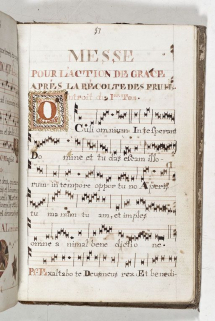 51
MESSE
POUR L'ACTION DE GRACE
APRES LA RECOLTE DES FRUITS
Oculi omnium In te sperant
Do mine et tu das escam illo
rum in tempore oppor tu no Aperis
tu ma num tu am, et imples
omne a nimal bene dictio ne
Ps. Exaltabo te Deus meus rex. Et benedi